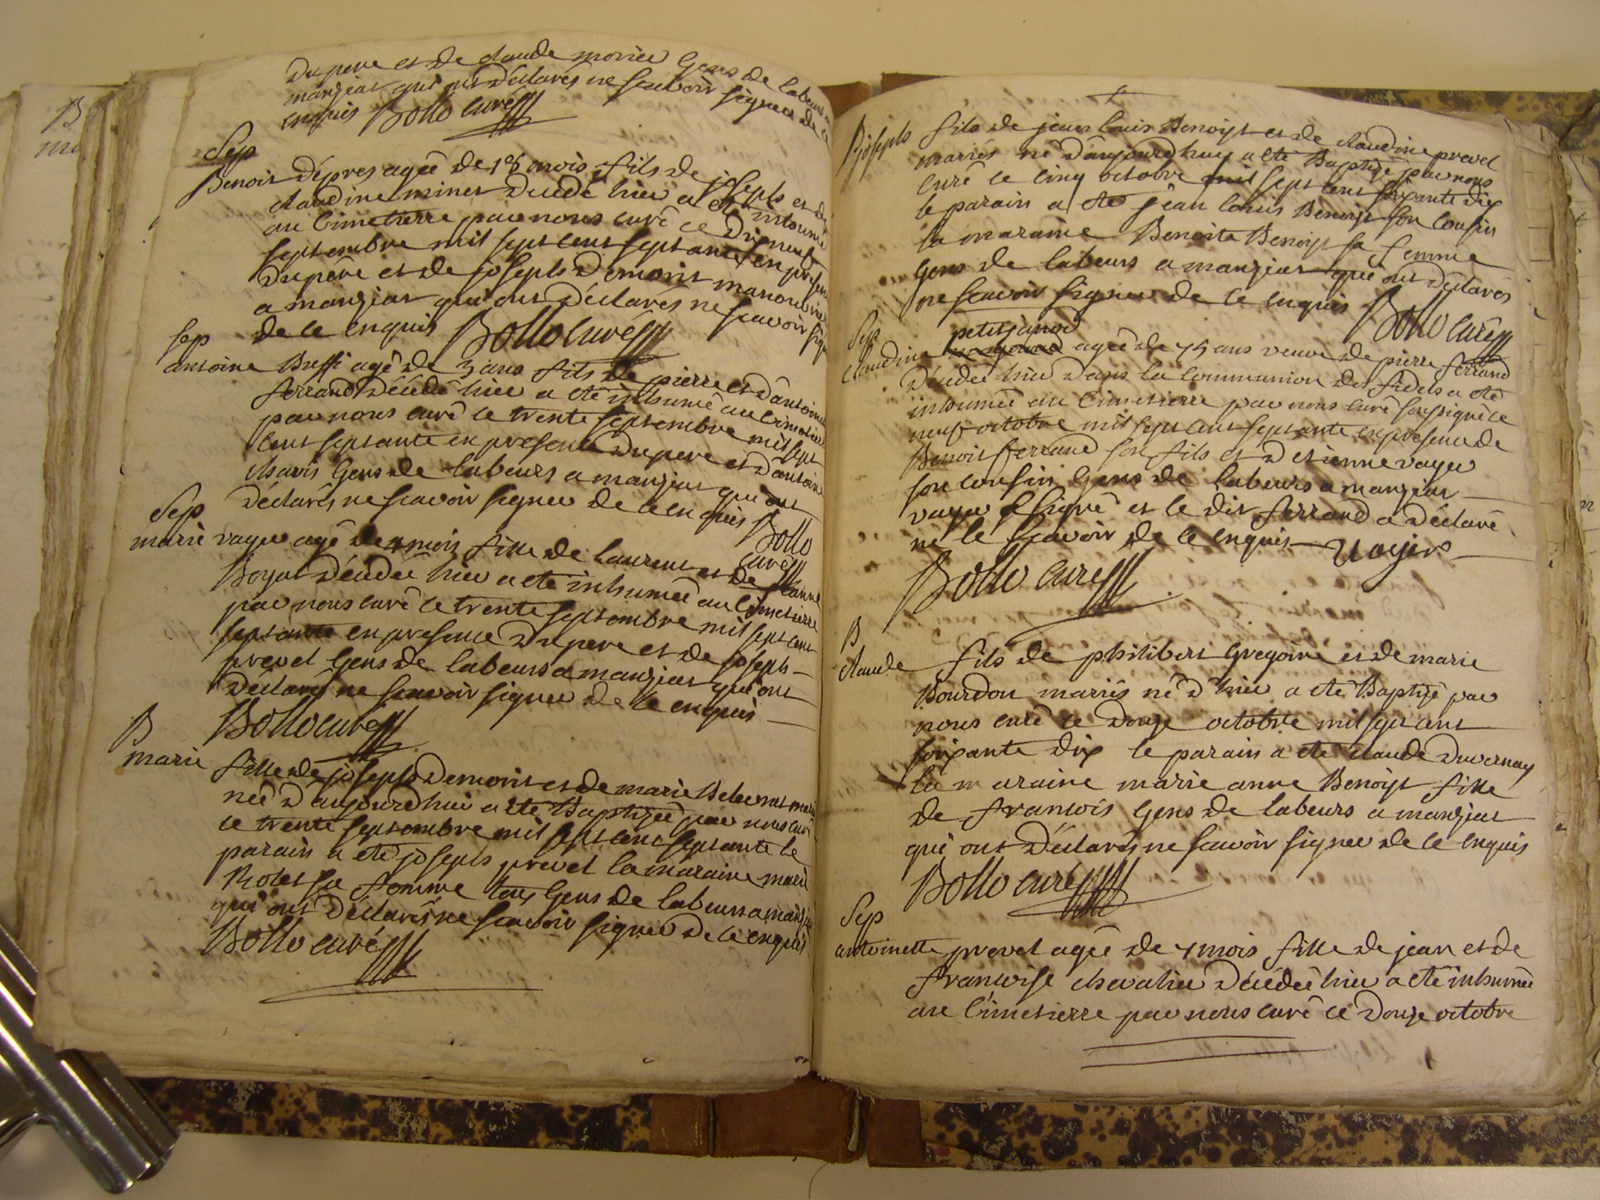 B
du pere et de claude monier Gens de labeurs a
manziat qui ont déclarés ne scavoir signer de ce
enquis Bollo curé
Sep
Benoit dépres agée de 18 mois fils de joseph et de
claudine miner décédé hier a été inhumé
au Cimetierre par nous curé ce dix neuf
septembre mil sept cent septante en présence
du pére et de joseph demont manouvrier
a manziat qui ont déclarés ne scavoir signer
de ce enquis Bollo curé
Sep
antoine Buffi agé de 3 ans fils de pierre et d'antoinette
ferrand décédé hier a été inhumé au Cimetierre
par nous curé ce trente septembre mil sept
cent septante en presence du pere et d'antoine
chavis Gens de labeurs a manziat qui ont
déclarés ne scavoir signer de ce enquis Bollo
curé
Sep
marie vayer agé de 4 mois fille de laurent et de jeanne
Boyat décédée hier a été inhumée au Cimetierre
par nous curé ce trente septembre mil sept cent
septante en presence du pere et de joseph
prevel Gens de labeurs a manziat qui ont
déclaré ne scavoir signer de ce enquis
Bollo curé
B
marie fille de joseph demont et de marie mariés
née d'aujourdhui a été Baptizée par nous curé
ce trente septembre mil sept cent septante le
parain a été joseph prevel la maraine marie
sa femme tous Gens de labeurs a manziat
qui ont déclarés ne scavoir signer de ce enquis
Bollo curé
B joseph fils de jean louis Benoist et de claudine prevel
mariés né d'aujourdhuy a été Baptizé par nous
curé ce cinq octobre mil sept cent soixante dix
le parain a été jean louis Benoist son cousin
la maraine Benoite Benoist sa femme
Gens de labeurs a manziat qui ont déclarés
ne scavoir signer de ce enquis Bollo curé
Sep petitjanod
claudine agée de 75 ans veuve de pierre ferrand
décédée hier dans la communion des fidels a été
inhumée au Cimetierre par nous curé soussigné le
neuf octobre mil sept cent septante en présence de
Benoit ferrand son fils et d etienne vayer
son cousin Gens de labeurs a manziat
vayer a signé et le dit ferrand a déclaré
ne le scavoir de ce enquis Vayer
Bollo curé
B
claude fils de philibert Gregoire et de marie
Bourdon mariés né d'hier a été Baptizé par
nous curé ce douze octobre mil sept cent
soixante dix le parain a été claude duvernay
la maraine marie anne Benoist fille
de francois Gens de labeurs a manziat
qui ont déclarés ne scavoir signer de ce enquis
Bollo curé
Sep
antoinette prevel agée de 7 mois fille de jean et de
francoise chevalier décédée hier a été inhumée
au Cimetierre par nous curé ce douze octobre